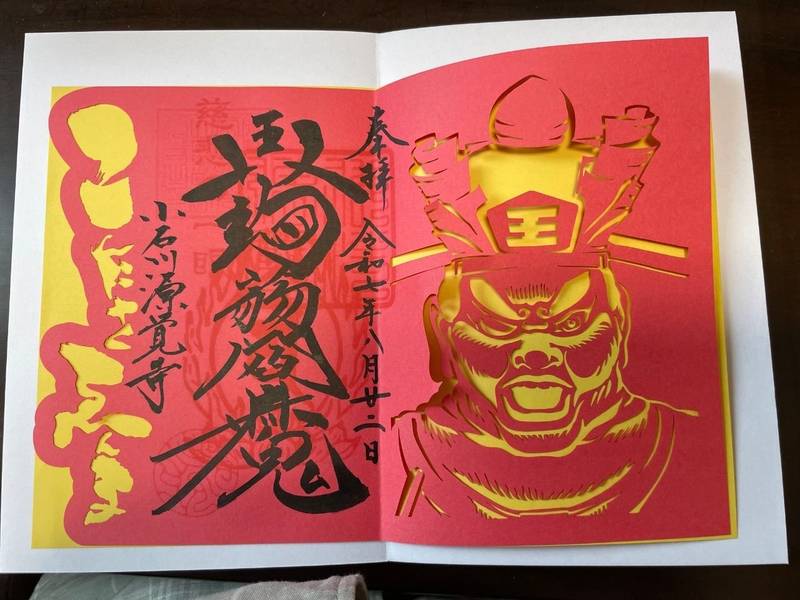 王
奉拝 令和七年八月廿二日
蒟蒻閻魔
小石川源覺寺
こんにゃくえんま